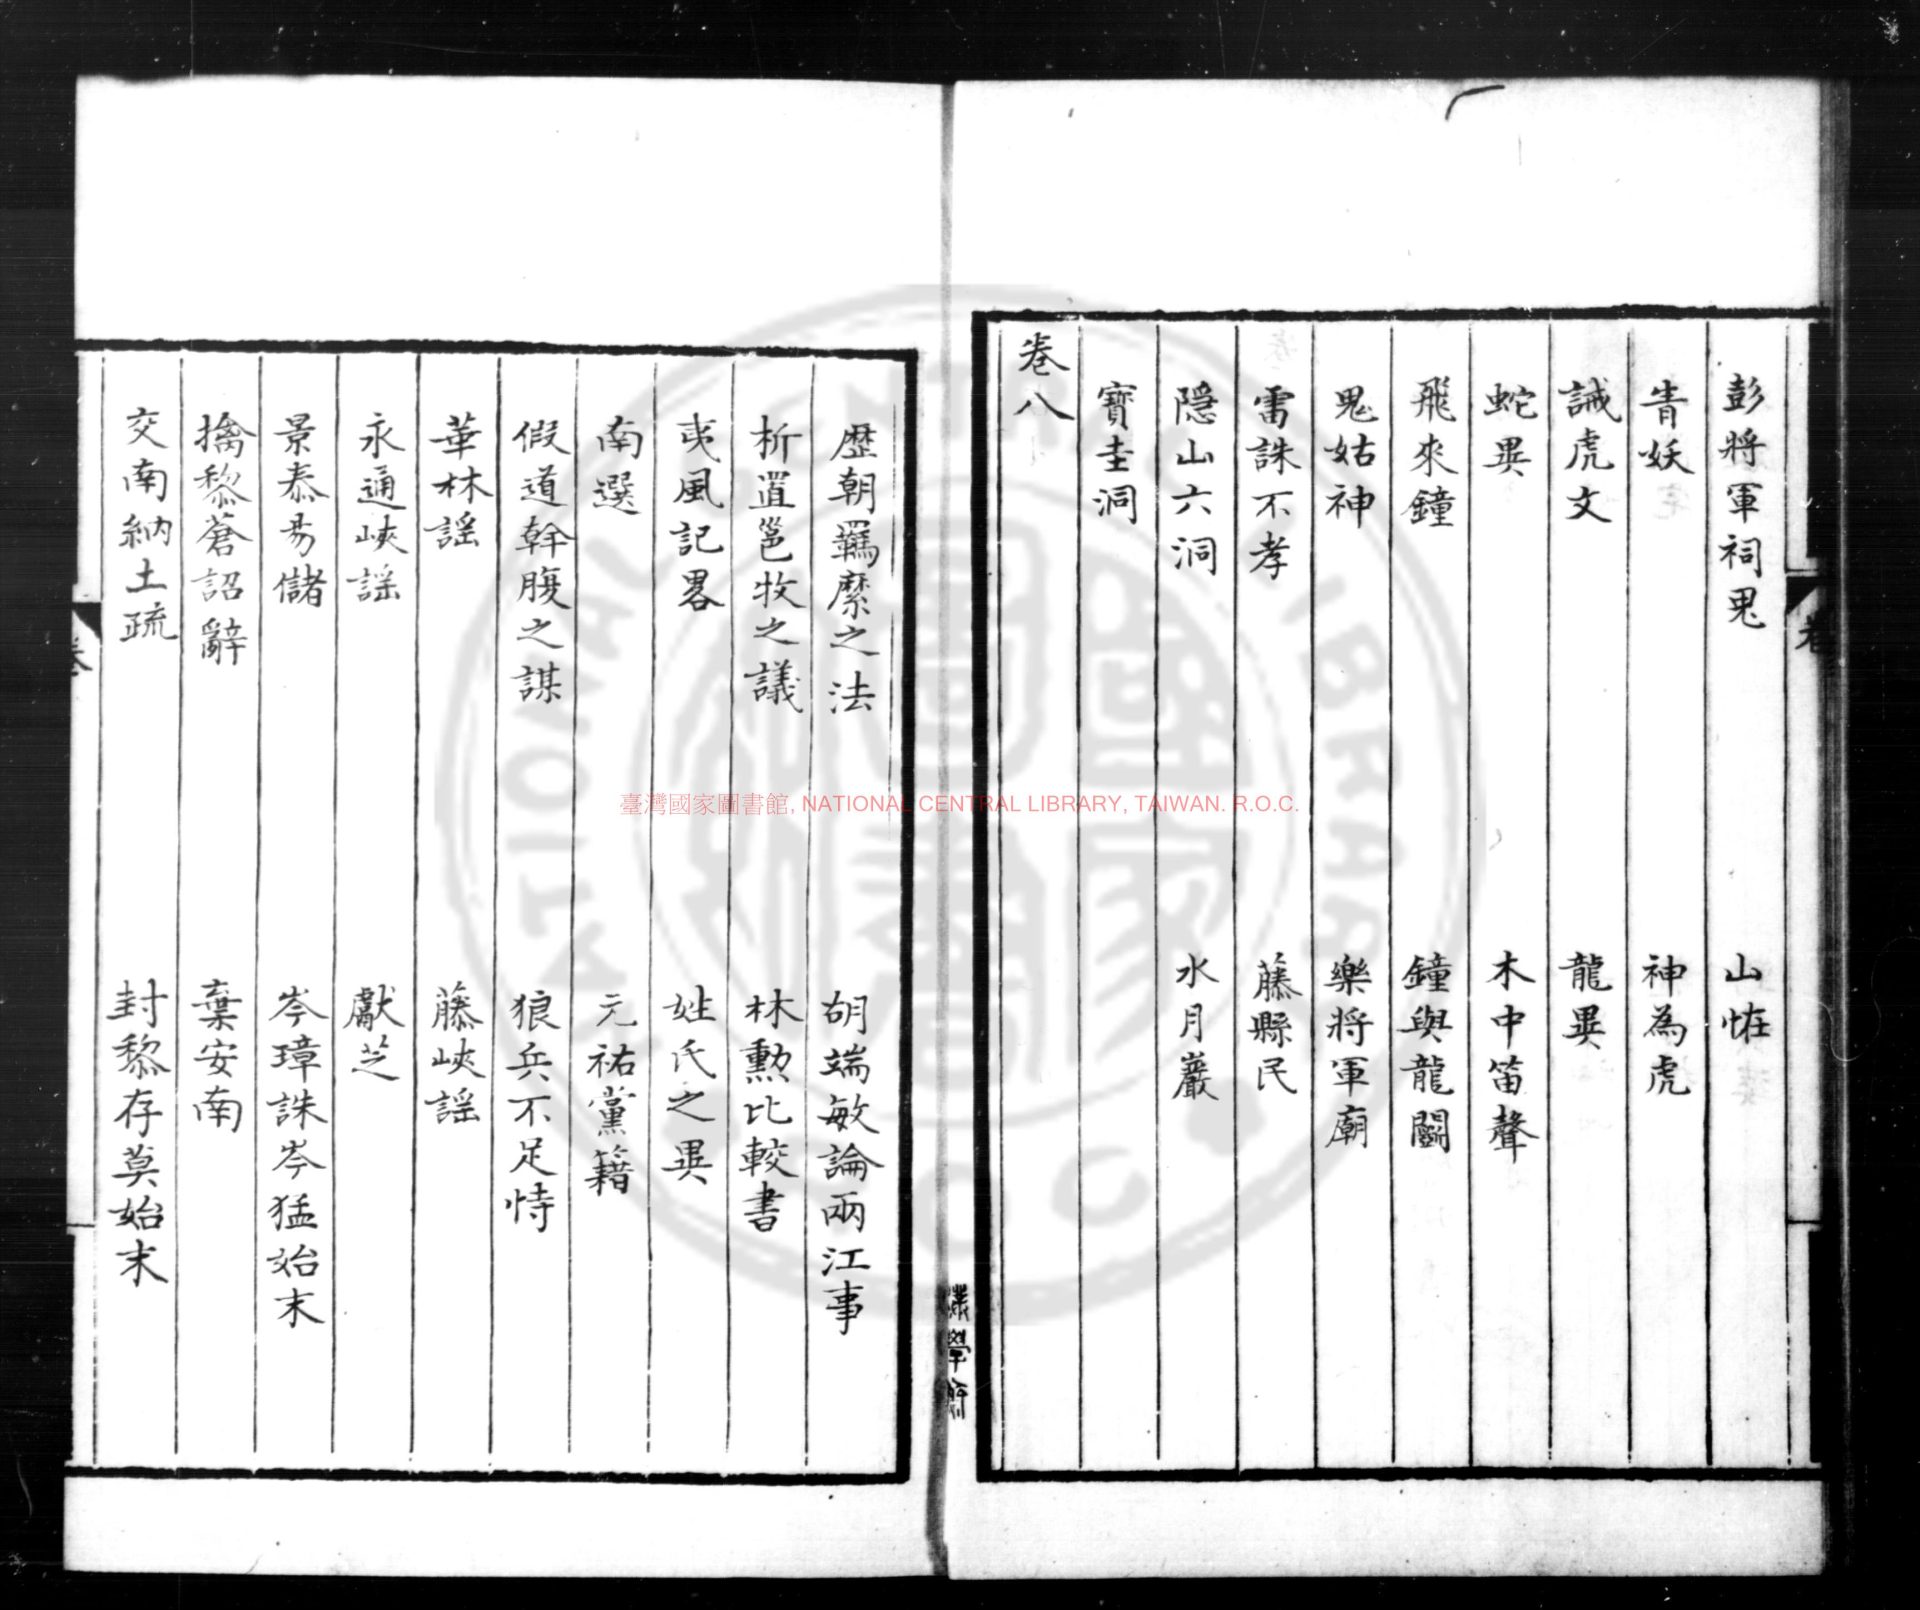 彭將軍祠鬼　山恠
青妖　神為虎
誡虎文　龍異
蛇異　木中笛聲
飛來鐘　鐘與龍鬬
鬼姑神　樂將軍廟
雷誅不孝　藤縣民
隱山六洞　水月巖
寶圭洞
卷八
歷朝羈縻之法　胡端敏論兩江事
析置邕牧之議　林勳比較書
夷風記畧　姓氏之異
南選　元祐黨籍
假道幹腹之謀　狼兵不足恃
華林謡　藤峽謡
永通峽謡　獻芝
景泰易儲　岑璋誅岑猛始末
擒黎蒼詔辭　棄安南
交南納土疏　封黎存莫始末
臺灣國家圖書館, NATIONAL CENTRAL LIBRARY, TAIWAN. R.O.C.